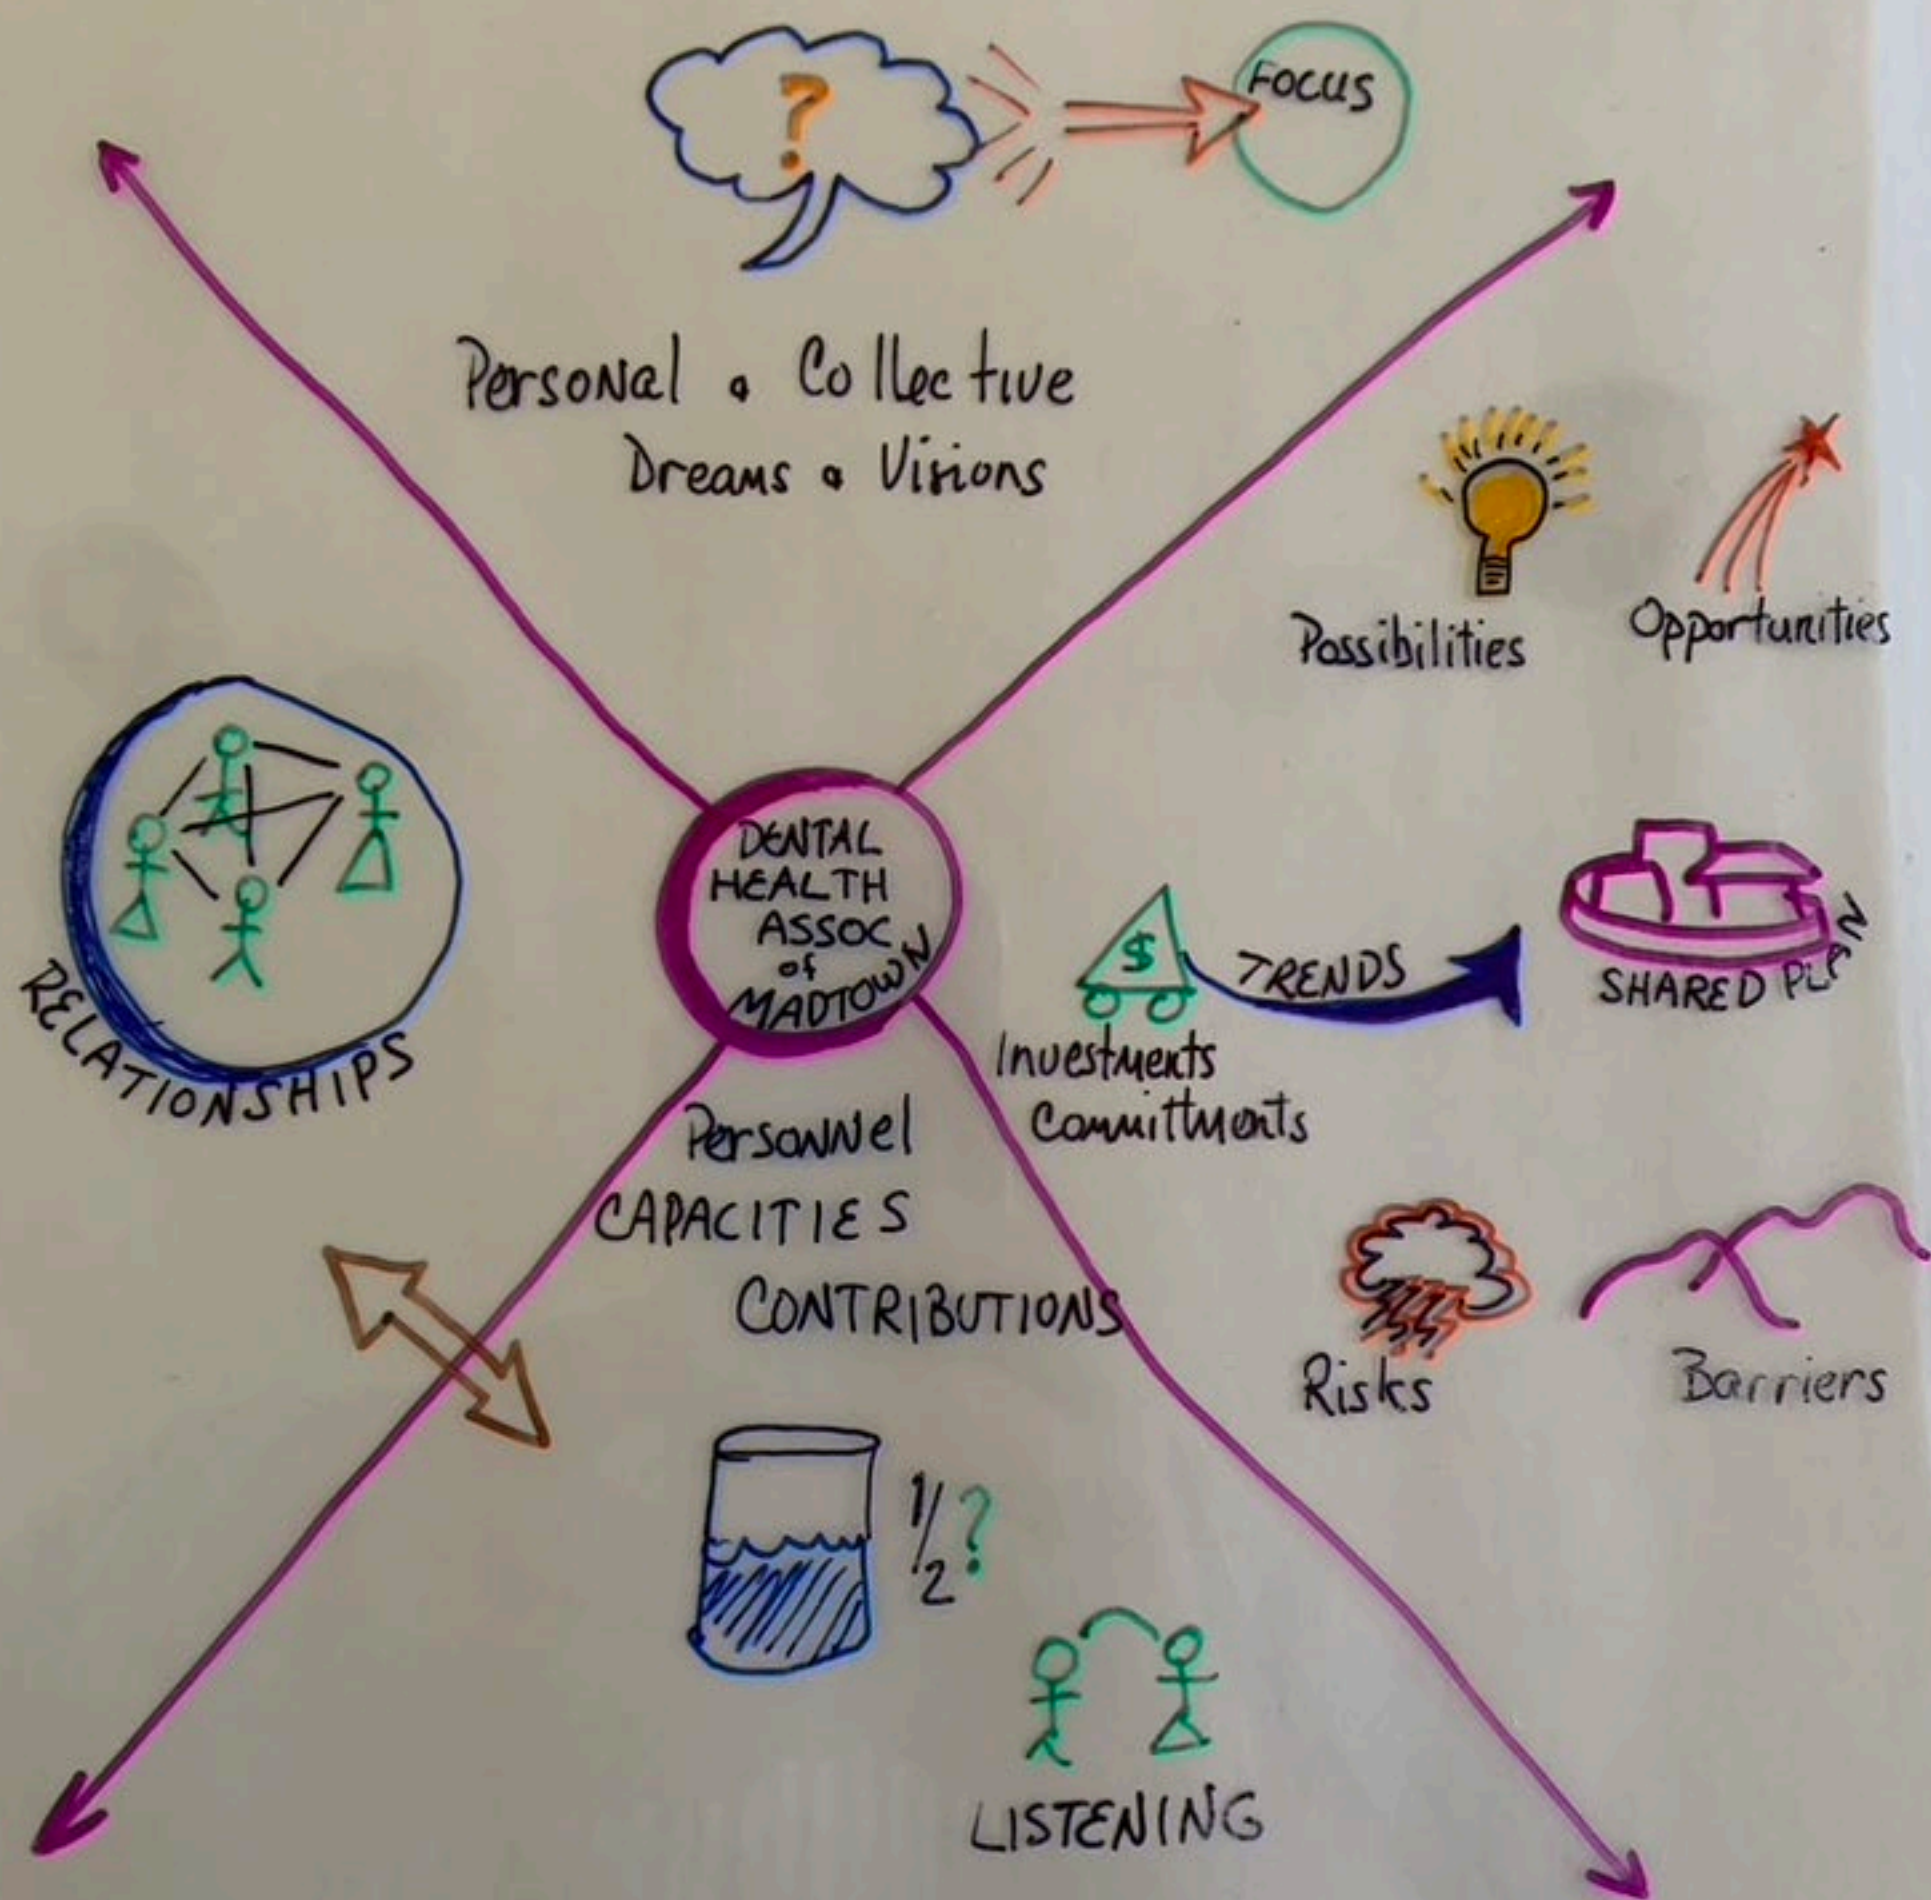 ?
FOCUS
Personal • Collective
Dreams • Visions
Possibilities
Opportunities
RELATIONSHIPS
DENTAL
HEALTH
ASSOC
of
MADTOWN
$
TRENDS
SHARED PLAN
Investments
Committments
Personnel
CAPACITIES
CONTRIBUTIONS
Risks
Barriers
1/2?
LISTENING